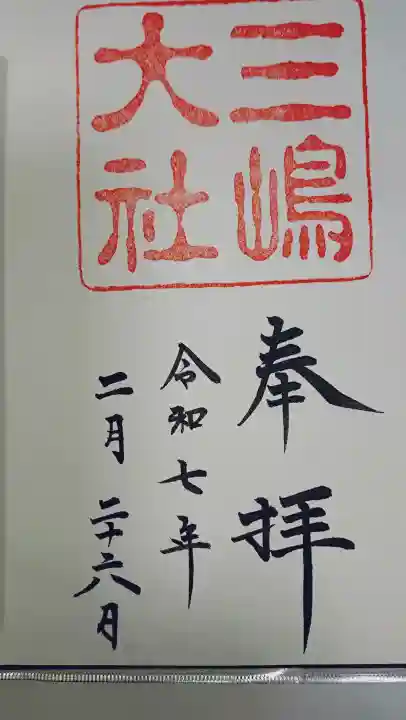 三嶋
大社
奉拝
令和七年
二月二十六日